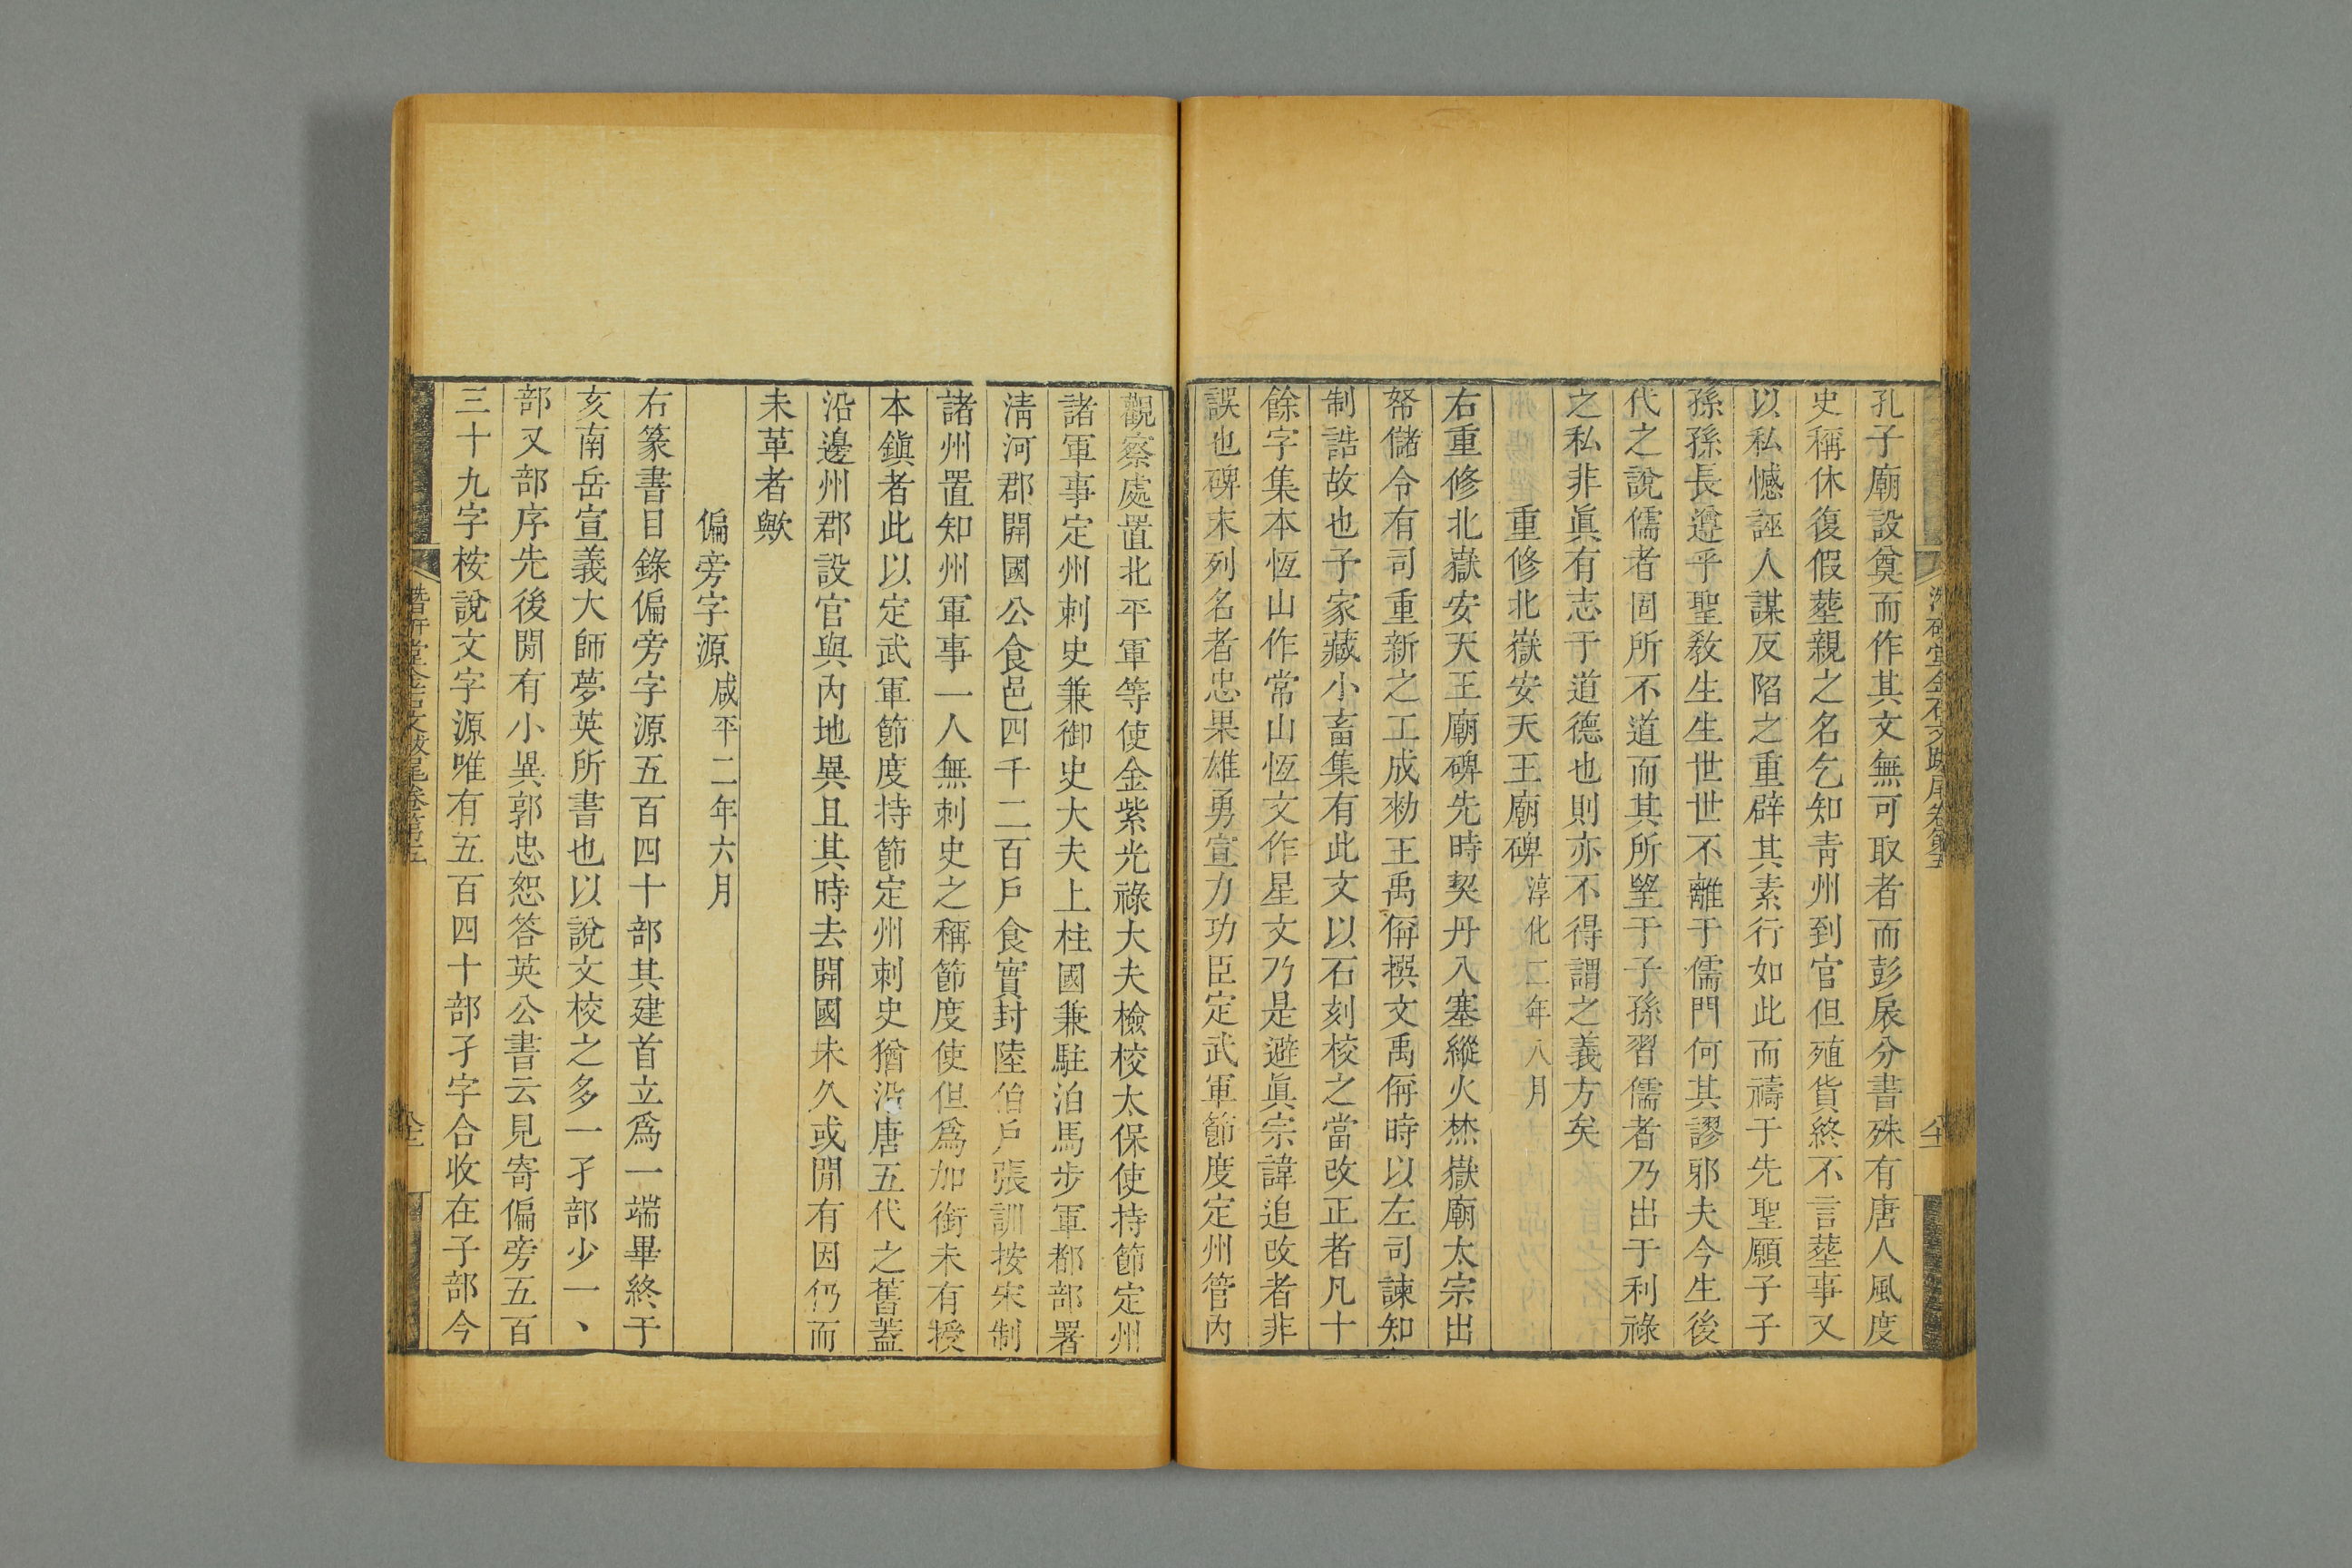 孔子廟設奠而作其文無可取者而彭㞐分書殊有唐人風度
史稱休復假塟親之名乞知青州到官但殖貨終不言塟事又
以私憾誣人謀反陷之重辟其素行如此而禱于先聖願子子
孫孫長遵乎聖敎生生世世不離于儒門何其謬邪夫今生後
代之說儒者固所不道而其所朢于子孫習儒者乃出于利祿
之私非眞有志于道德也則亦不得謂之義方矣
重修北嶽安天王廟碑 淳化二年八月
右重修北嶽安天王廟碑先時契丹入塞縱火焚嶽廟太宗出
帑儲令有司重新之工成勑王禹偁撰文禹偁時以左司諫知
制誥故也予家藏小畜集有此文以石刻校之當改正者凡十
餘字集本恆山作常山恆文作星文乃是避眞宗諱追改者非
誤也碑末列名者忠果雄勇宣力功臣定武軍節度定州管內
觀察處置北平軍等使金紫光祿大夫檢校太保使持節定州
諸軍事定州刺史兼御史大夫上柱國兼駐泊馬步軍都部署
淸河郡開國公食邑四千二百戶食實封陸伯戶張訓按宋制
諸州置知州軍事一人無刺史之稱節度使但爲加銜未有授
本鎭者此以定武軍節度持節定州刺史猶沿唐五代之舊蓋
沿邊州郡設官與內地異且其時去開國未久或閒有因仍而
未革者歟
偏旁字源 咸平二年六月
右篆書目錄偏旁字源五百四十部其建首立爲一端畢終于
亥南岳宣義大師夢英所書也以說文校之多一孑部少一丶
部又部序先後閒有小異郭忠恕答英公書云見寄偏旁五百
三十九字桉說文字源唯有五百四十部孑字合收在子部今
潛研堂金石文跋尾卷第五